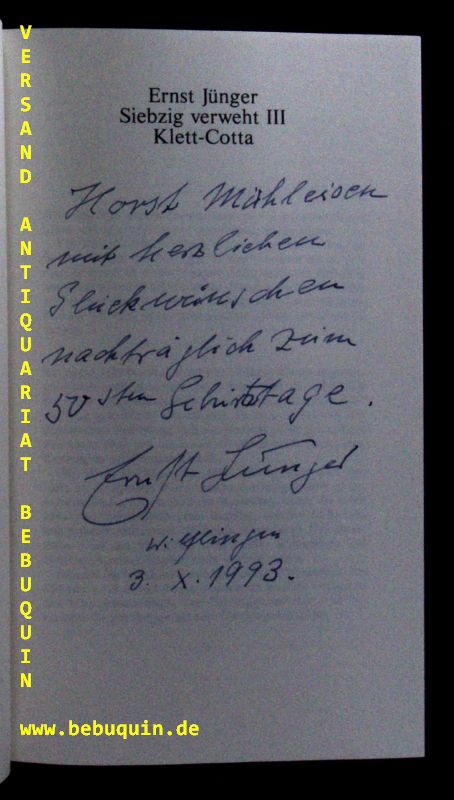 Ernst Jünger
Siebzig verweht III
Klett-Cotta
Horst Mühleisen
mit herzlichen
Glückwünschen
nachträglich zum
50sten Geburtstage.
Ernst Jünger
Wilflingen
3. X. 1993.
VERSAND ANTIQUARIAT BEBUQUIN
www.bebuquin.de